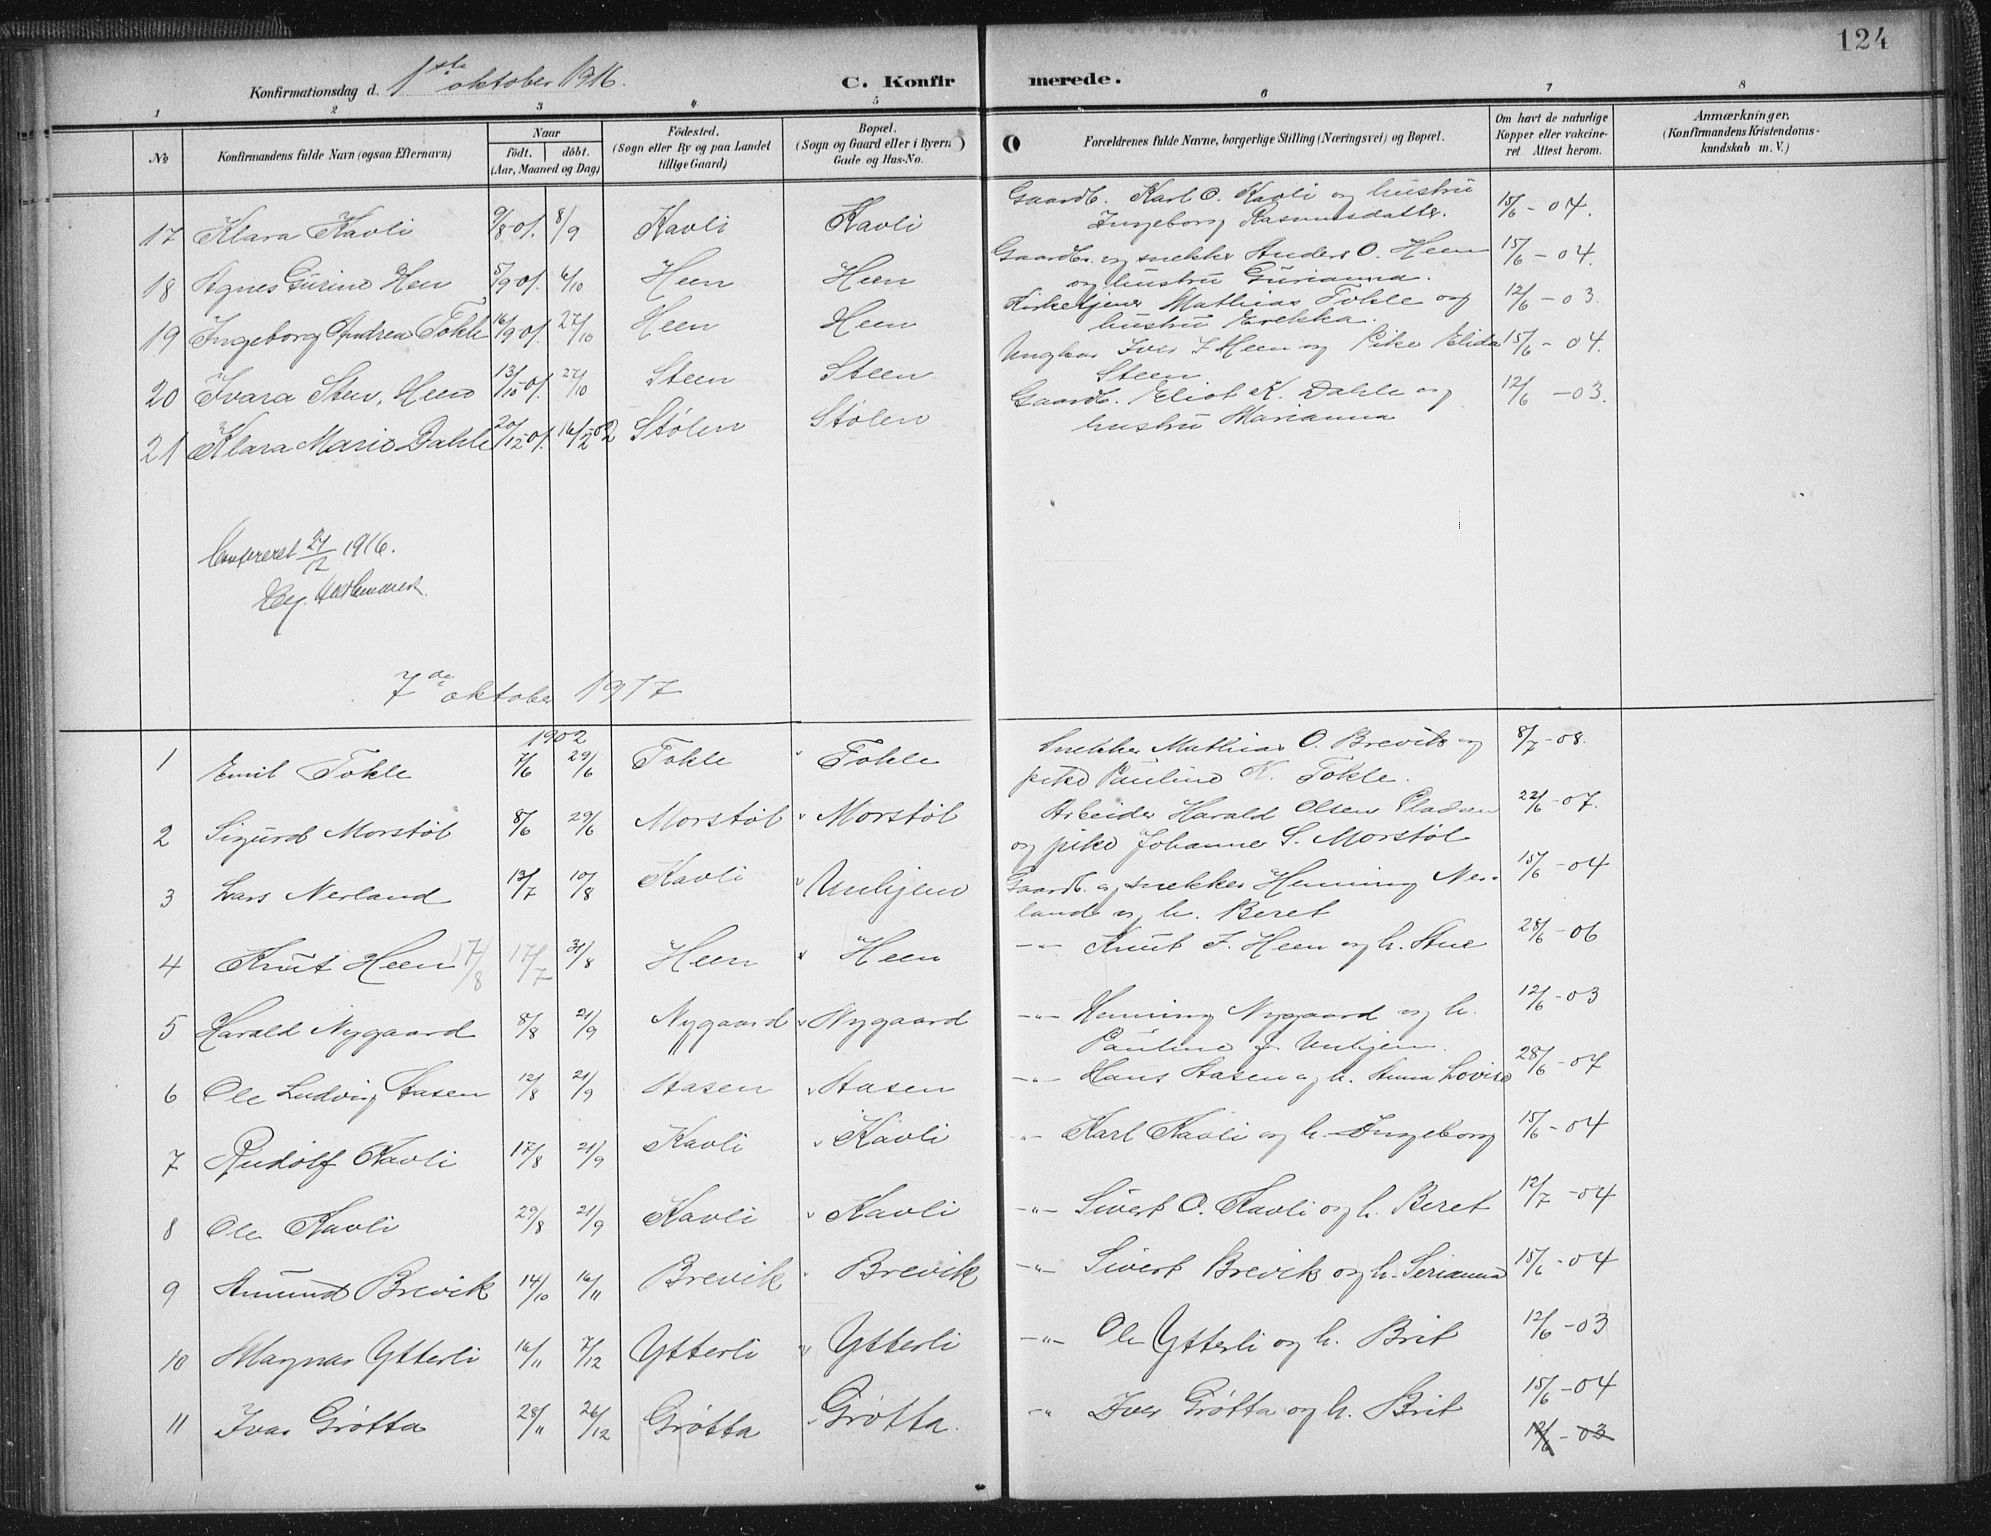 124
Konfirmationsdag d. 1ste oktober 1916.
C. Konfirmerede.
1 2 3 4 5 6 7 8
No
Konfirmandens fulde Navn (ogsaa Efternavn)
Naar
födt. döbt.
(Aar, Maaned og Dag)
Födested.
(Sogn eller By og paa Landet
tillige Gaard)
Bopæl.
(Sogn og Gaard eller i Byern
Gade og Hus-No.
Forældrenes fulde Navne, borgerlige Stilling (Næringsvei) og Bopæl.
Om havt de naturlige
Kopper eller vakcine-
ret Attest herom.
Anmærkninger.
(Konfirmandens Kristendoms-
kundskab m. V.)
17 Klara Kavli 9/8 01. 8/9 Kavli Kavli Gaardb. Karl O. Kavli og hustru 15/6 - 04.
Ingeborg Rasmusdatter.
18 Agnes Gurine Hen 5/9 01. 6/10 Heen Heen Gaardbr. og snekker Anders O. Heen 15/6 - 04.
og hustru Gurianna.
19 Ingeborg Andrea Tokle 16/9 01. 27/10 Heen Heen Kirketjener Mathias Tokle og 12/6 - 03.
hustru Erekka.
20 Ivara Sten, Heen 13/10 01. 27/10 Steen Steen Ungkar Iver I Heen og Pike Elida 15/6 - 04.
Steen
21 Klara Marie Dahle 20/12 01. 16/2 02 Stølen Stølen Gaardb. Eliot K. Dahle og 12/6 - 03.
hustru Marianna
Confereret 27/12 1916.
7de oktober 1917
1902
1 Emil Tokle 7/6 29/6 Tokle " Tokle Snekker Mathias O. Brevik og 8/7 - 08.
pike Pauline K. Tokle.
2 Sigurd Morstøl 8/6 29/6 Morstøl " Morstøl Arbeider Harald Olsen Pladsen 22/6 - 07.
og pike Johanne S. Morstøl
3 Lars Nerland 13/7 10/8 Kavli " Unhjem Gaardb. og snekker Henning Ner- 15/6 - 04
land og h. Beret
4 Knut Heen 17/8 17/7 31/8 Heen " Heen -"- Knut J. Heen og h. Ane 28/6 - 06
5 Harald Nygaard 8/8 21/9 Nygaard " Nygaard -"- Henning Nygaard og h. 12/6 - 03
Pauline J. Unhjem
6 Ole Ludvig Hasen 12/8 21/9 Hasen " Hasen -"- Hans Hasen og h. Anna Lovise 28/6 - 07
7 Rudolf Kavli 17/8 21/9 Kavli " Kavli -"- Karl Kavli og h. Ingeborg 15/6 - 04
8 Ole Kavli 29/8 21/9 Kavli " Kavli -"- Sivert O. Kavli og h. Beret 12/7 - 04
9 Amund Brevik 14/10 16/11 Brevik " Brevik -"- Sivert Brevik og h. Serianna 15/6 - 04
10 Magnar Ytterli 16/11 7/12 Ytterli " Ytterli -"- Ole Ytterli og h. Brit 12/6 - 03
11 Ivar Grøtta 28/11 26/12 Grøtta " Grøtta. -"- Iver Grøtta og h. Brit 15/6 - 04
12/6 - 03